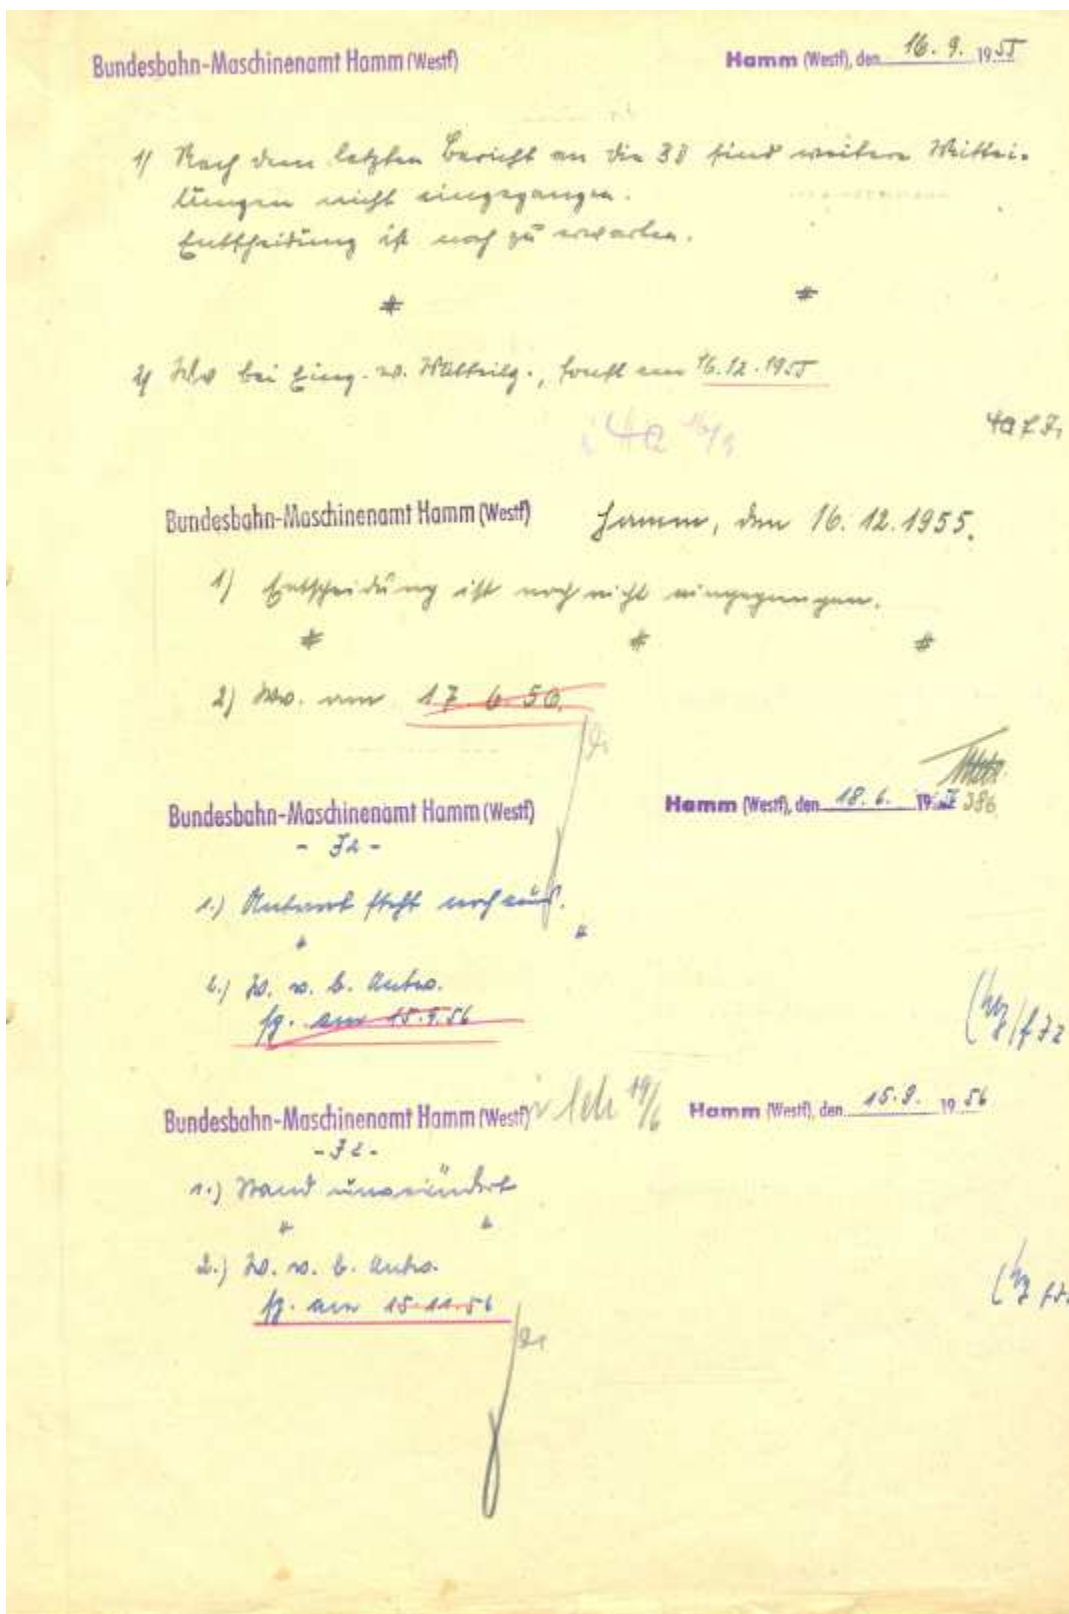 Bundesbahn-Maschinenamt Hamm (Westf)
Hamm (Westf), den 16. 9. 1955
1) Nach dem letzten Bericht an die sind weitere Mittei-
lungen nicht eingegangen.
Entscheidung ist noch zu erwarten.
#
#
2) Wv bei Eing. w. Mitteilg., sonst am 16.12.1955
4a 16/9
Bundesbahn-Maschinenamt Hamm (Westf)
Hamm, den 16. 12. 1955.
1) Entscheidung ist noch nicht eingegangen.
# # #
2) Wv. am 17. 6. 56.
Bundesbahn-Maschinenamt Hamm (Westf)
Hamm (Westf), den 18. 6. 19
1.) Antwort steht noch aus.
"
"
2.) W. v. b. Antw.
sp. am 15.9.56
19/6
Bundesbahn-Maschinenamt Hamm (Westf)
Hamm (Westf), den 15. 9. 1956
1.) Stand unverändert
" "
2.) W. v. b. Antw.
sp. am 15.11.56